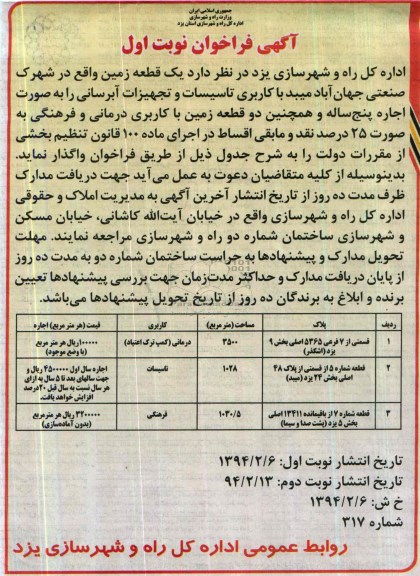 جمهوری اسلامی ایران
وزارت راه و شهرسازی
اداره کل راه و شهرسازی استان یزد
آگهی فراخوان نوبت اول
اداره کل راه و شهرسازی یزد در نظر دارد یک قطعه زمین واقع در شهرک
صنعتی جهان‌آباد میبد با کاربری تاسیسات و تجهیزات آبرسانی را به صورت
اجاره پنج‌ساله و همچنین دو قطعه زمین با کاربری درمانی و فرهنگی به
صورت ۲۵ درصد نقد و مابقی اقساط در اجرای ماده ۱۰۰ قانون تنظیم بخشی
از مقررات دولت را به شرح جدول ذیل از طریق فراخوان واگذار نماید.
بدینوسیله از کلیه متقاضیان دعوت به عمل می‌آید جهت دریافت مدارک
ظرف مدت ده روز از تاریخ انتشار آخرین آگهی به مدیریت املاک و حقوقی
اداره کل راه و شهرسازی واقع در خیابان آیت‌الله کاشانی، خیابان مسکن
و شهرسازی ساختمان شماره دو راه و شهرسازی مراجعه نمایند. مهلت
تحویل مدارک و پیشنهادها به حراست ساختمان شماره دو به مدت ده روز
از پایان دریافت مدارک و حداکثر مدت‌زمان جهت بررسی پیشنهادها تعیین
برنده و ابلاغ به برندگان ده روز از تاریخ تحویل پیشنهادها می‌باشد.
ردیف پلاک مساحت (متر مربع) کاربری قیمت (هر متر مربع) اجاره
۱ قسمتی از ۷ فرعی ۵۳۶۵ اصلی بخش ۹ یزد (اشکذر) ۳۵۰۰ درمانی (کمپ ترک اعتیاد) ۱۰۰۰۰۰ ریال هر متر مربع (با وضع موجود)
۲ قسمتی از ۵ فرعی از پلاک ۴۸ اصلی بخش ۲۴ یزد (میبد) ۱۰۲۸ تاسیسات اجاره سال اول ۴۵۰۰۰۰۰ ریال و جهت سالهای بعد تا ۵ سال به ازای هر سال نسبت به سال قبل ۲۰ درصد افزایش خواهد یافت.
۳ قطعه شماره ۷ از باقیمانده ۱۳۴۱۱ اصلی بخش ۵ یزد (پشت صدا و سیما) ۱۰۳۰/۵ فرهنگی ۳۲۰۰۰۰۰ ریال هر متر مربع (بدون آماده‌سازی)
تاریخ انتشار نوبت اول: ۱۳۹۴/۲/۶
تاریخ انتشار نوبت دوم: ۹۴/۲/۱۳
خ ش: ۱۳۹۴/۲/۶
شماره ۳۱۷
روابط عمومی اداره کل راه و شهرسازی یزد